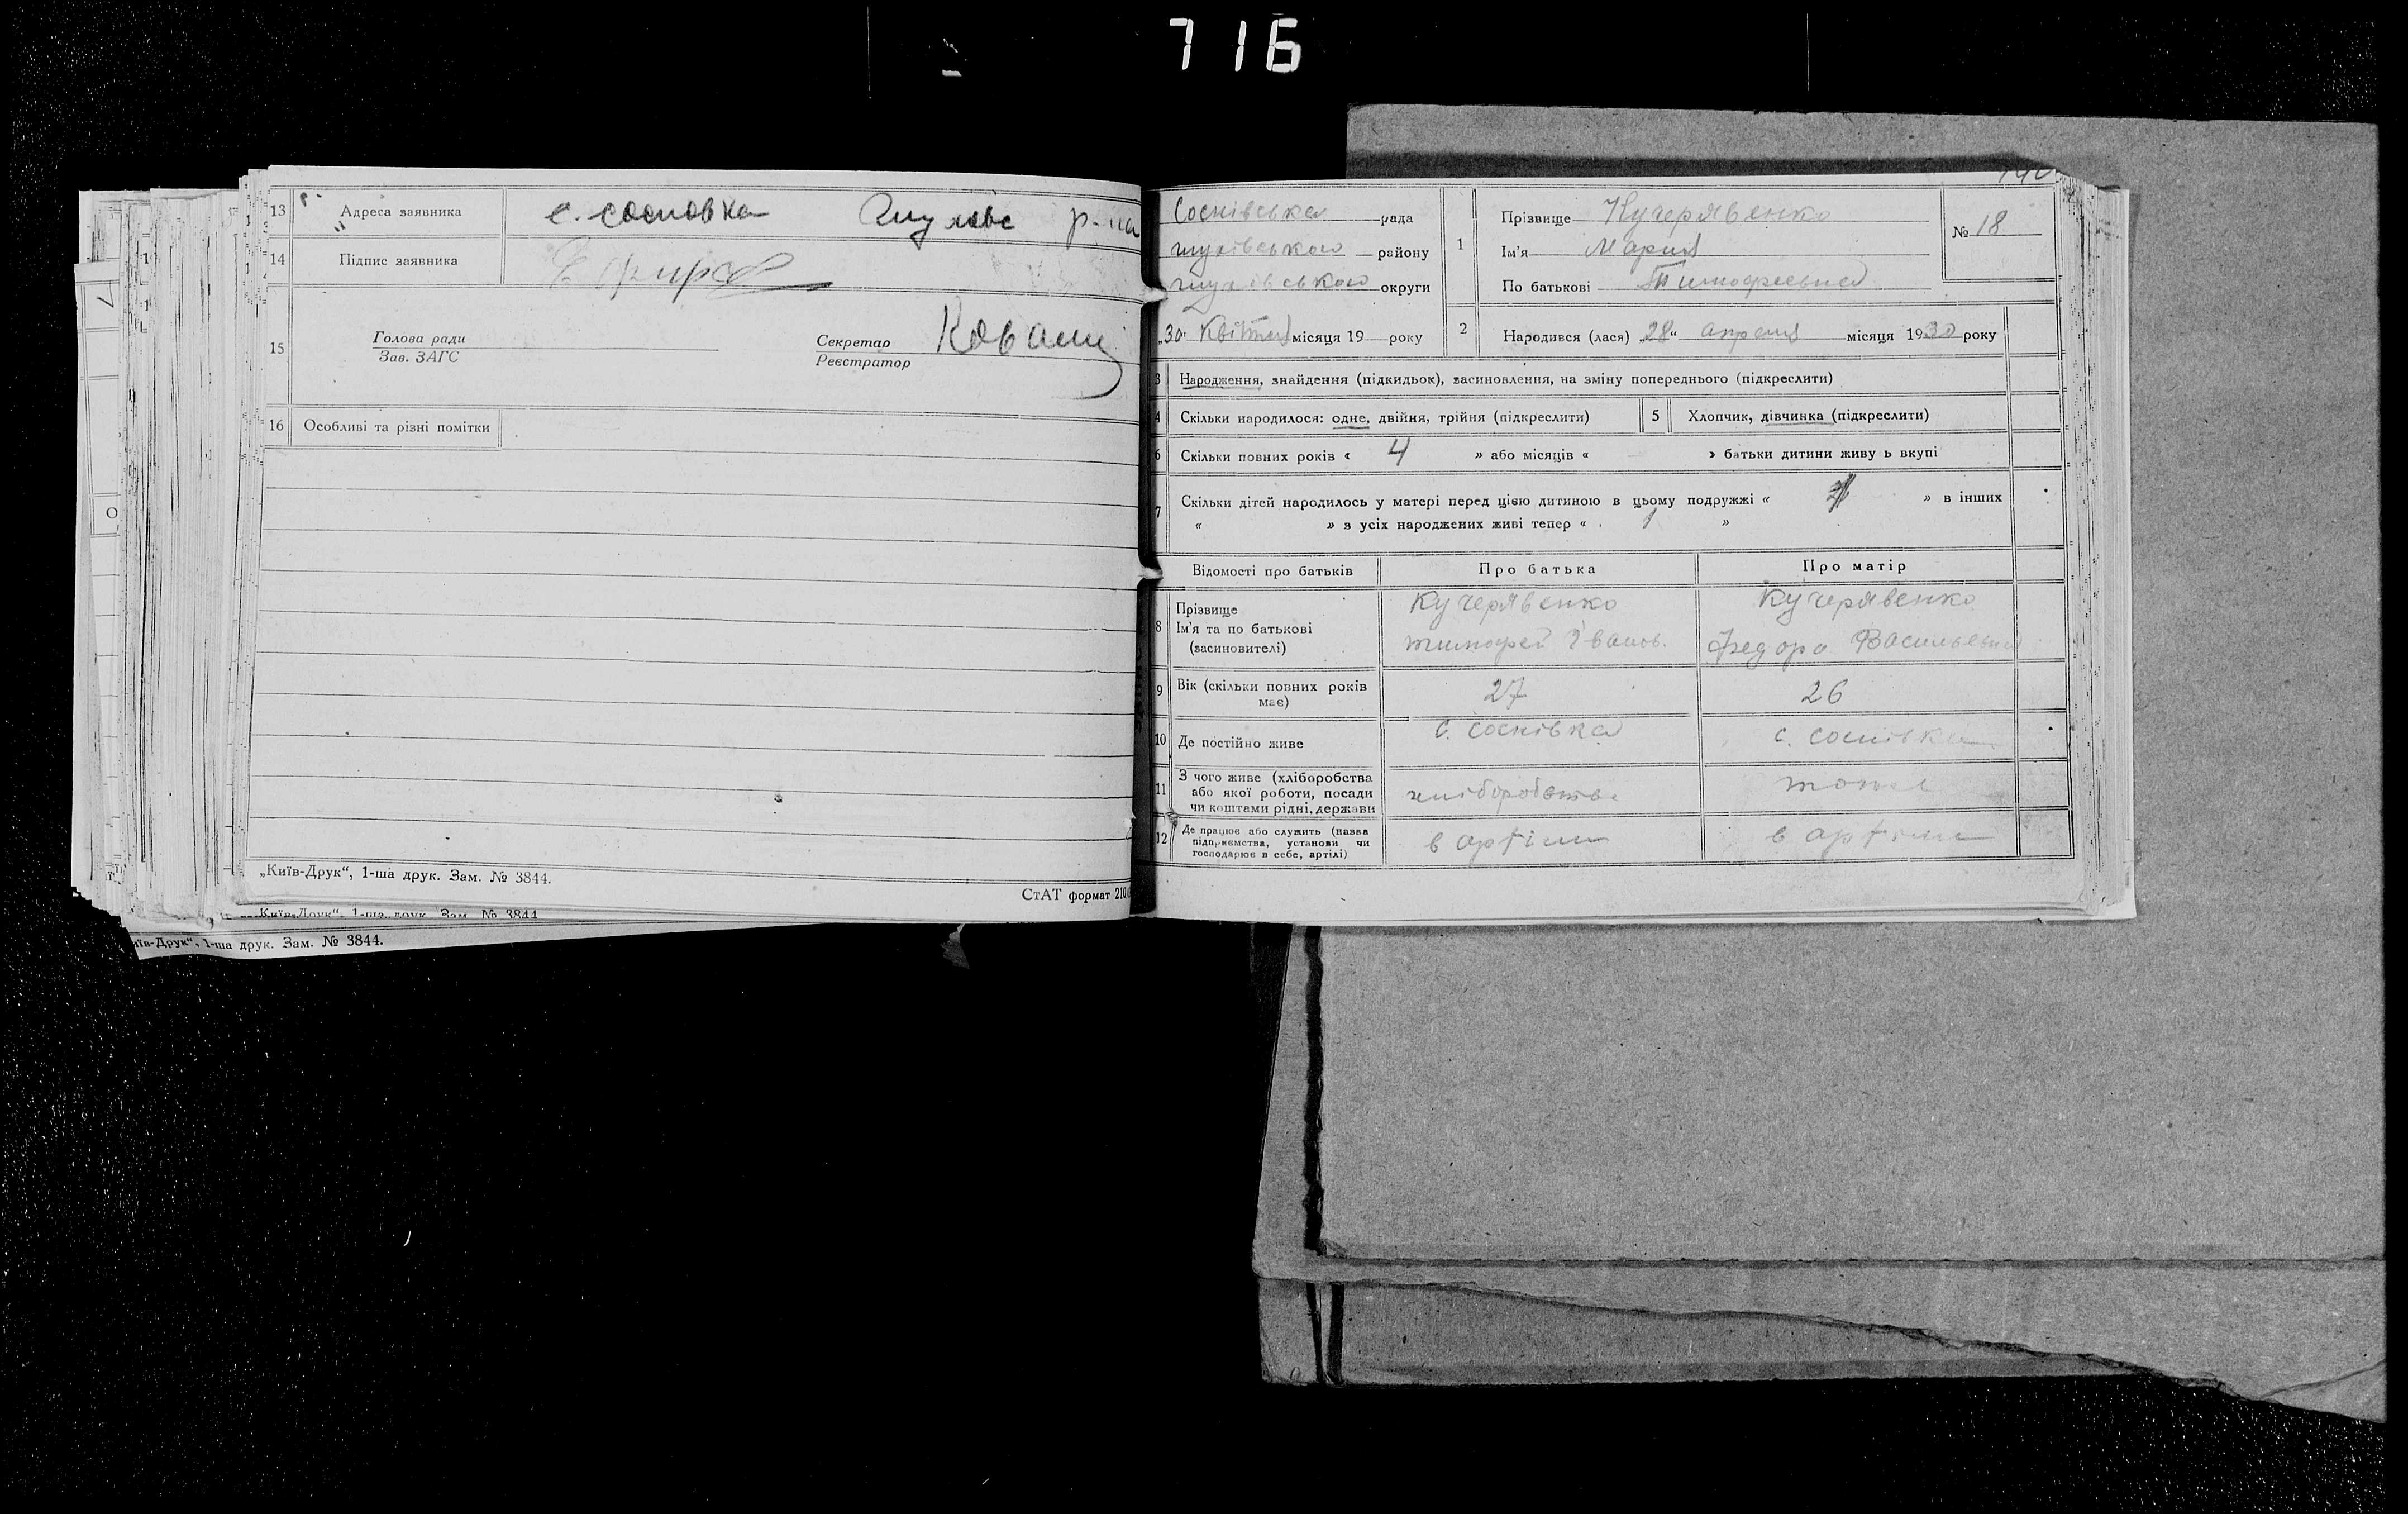 716
13 Адреса заявника с. сосновка Глухівс р-на
14 Підпис заявника
15 Голова ради
Зав. ЗАГС
Секретар
Реєстратор
16 Особливі та різні помітки
„Київ-Друк“, 1-ша друк. Зам. № 3844.
СтАТ формат 210
Київ-Друк“, 1-ша друк. Зам. № 3844
1-ша друк. Зам. № 3844.
Соснівська рада
глухівського району
глухівського округи
„30“ Квітня місяця 19 року
1 Прізвище Кучерявенко
Ім'я Мария
По батькові Тимофеевна
№ 18
2 Народився (лася) „28“ апреля місяця 1930 року
3 Народження, знайдення (підкидьок), засиновлення, на зміну попереднього (підкреслити)
4 Скільки народилося: одне, двійня, трійня (підкреслити) 5 Хлопчик, дівчинка (підкреслити)
6 Скільки повних років « 4 » або місяців « » батьки дитини живу ь вкупі
7 Скільки дітей народилось у матері перед цією дитиною в цьому подружжі « » в інших
« » з усіх народжених живі тепер « 1 »
Відомості про батьків Про батька Про матір
8 Прізвище Кучерявенко Кучерявенко
Ім'я та по батькові
(засиновителі) тимофей Іванов. Федора Васильевна
9 Вік (скільки повних років має) 27 26
10 Де постійно живе с. Соснівка с. соснівка
11 З чого живе (хліборобства
або якої роботи, посади
чи коштами рідні, держави хліборобство тоже
12 Де працює або служить (назва
підприємства, установи чи
господарює в себе, артілі) в артіли в артіли